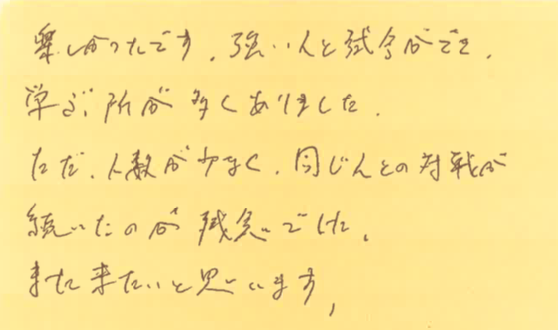 楽しかったです。強い人と試合ができ、
学ぶ所が多くありました。
ただ、人数が少なく、同じ人との対戦が
続いたのが残念でした。
また来たいと思います。